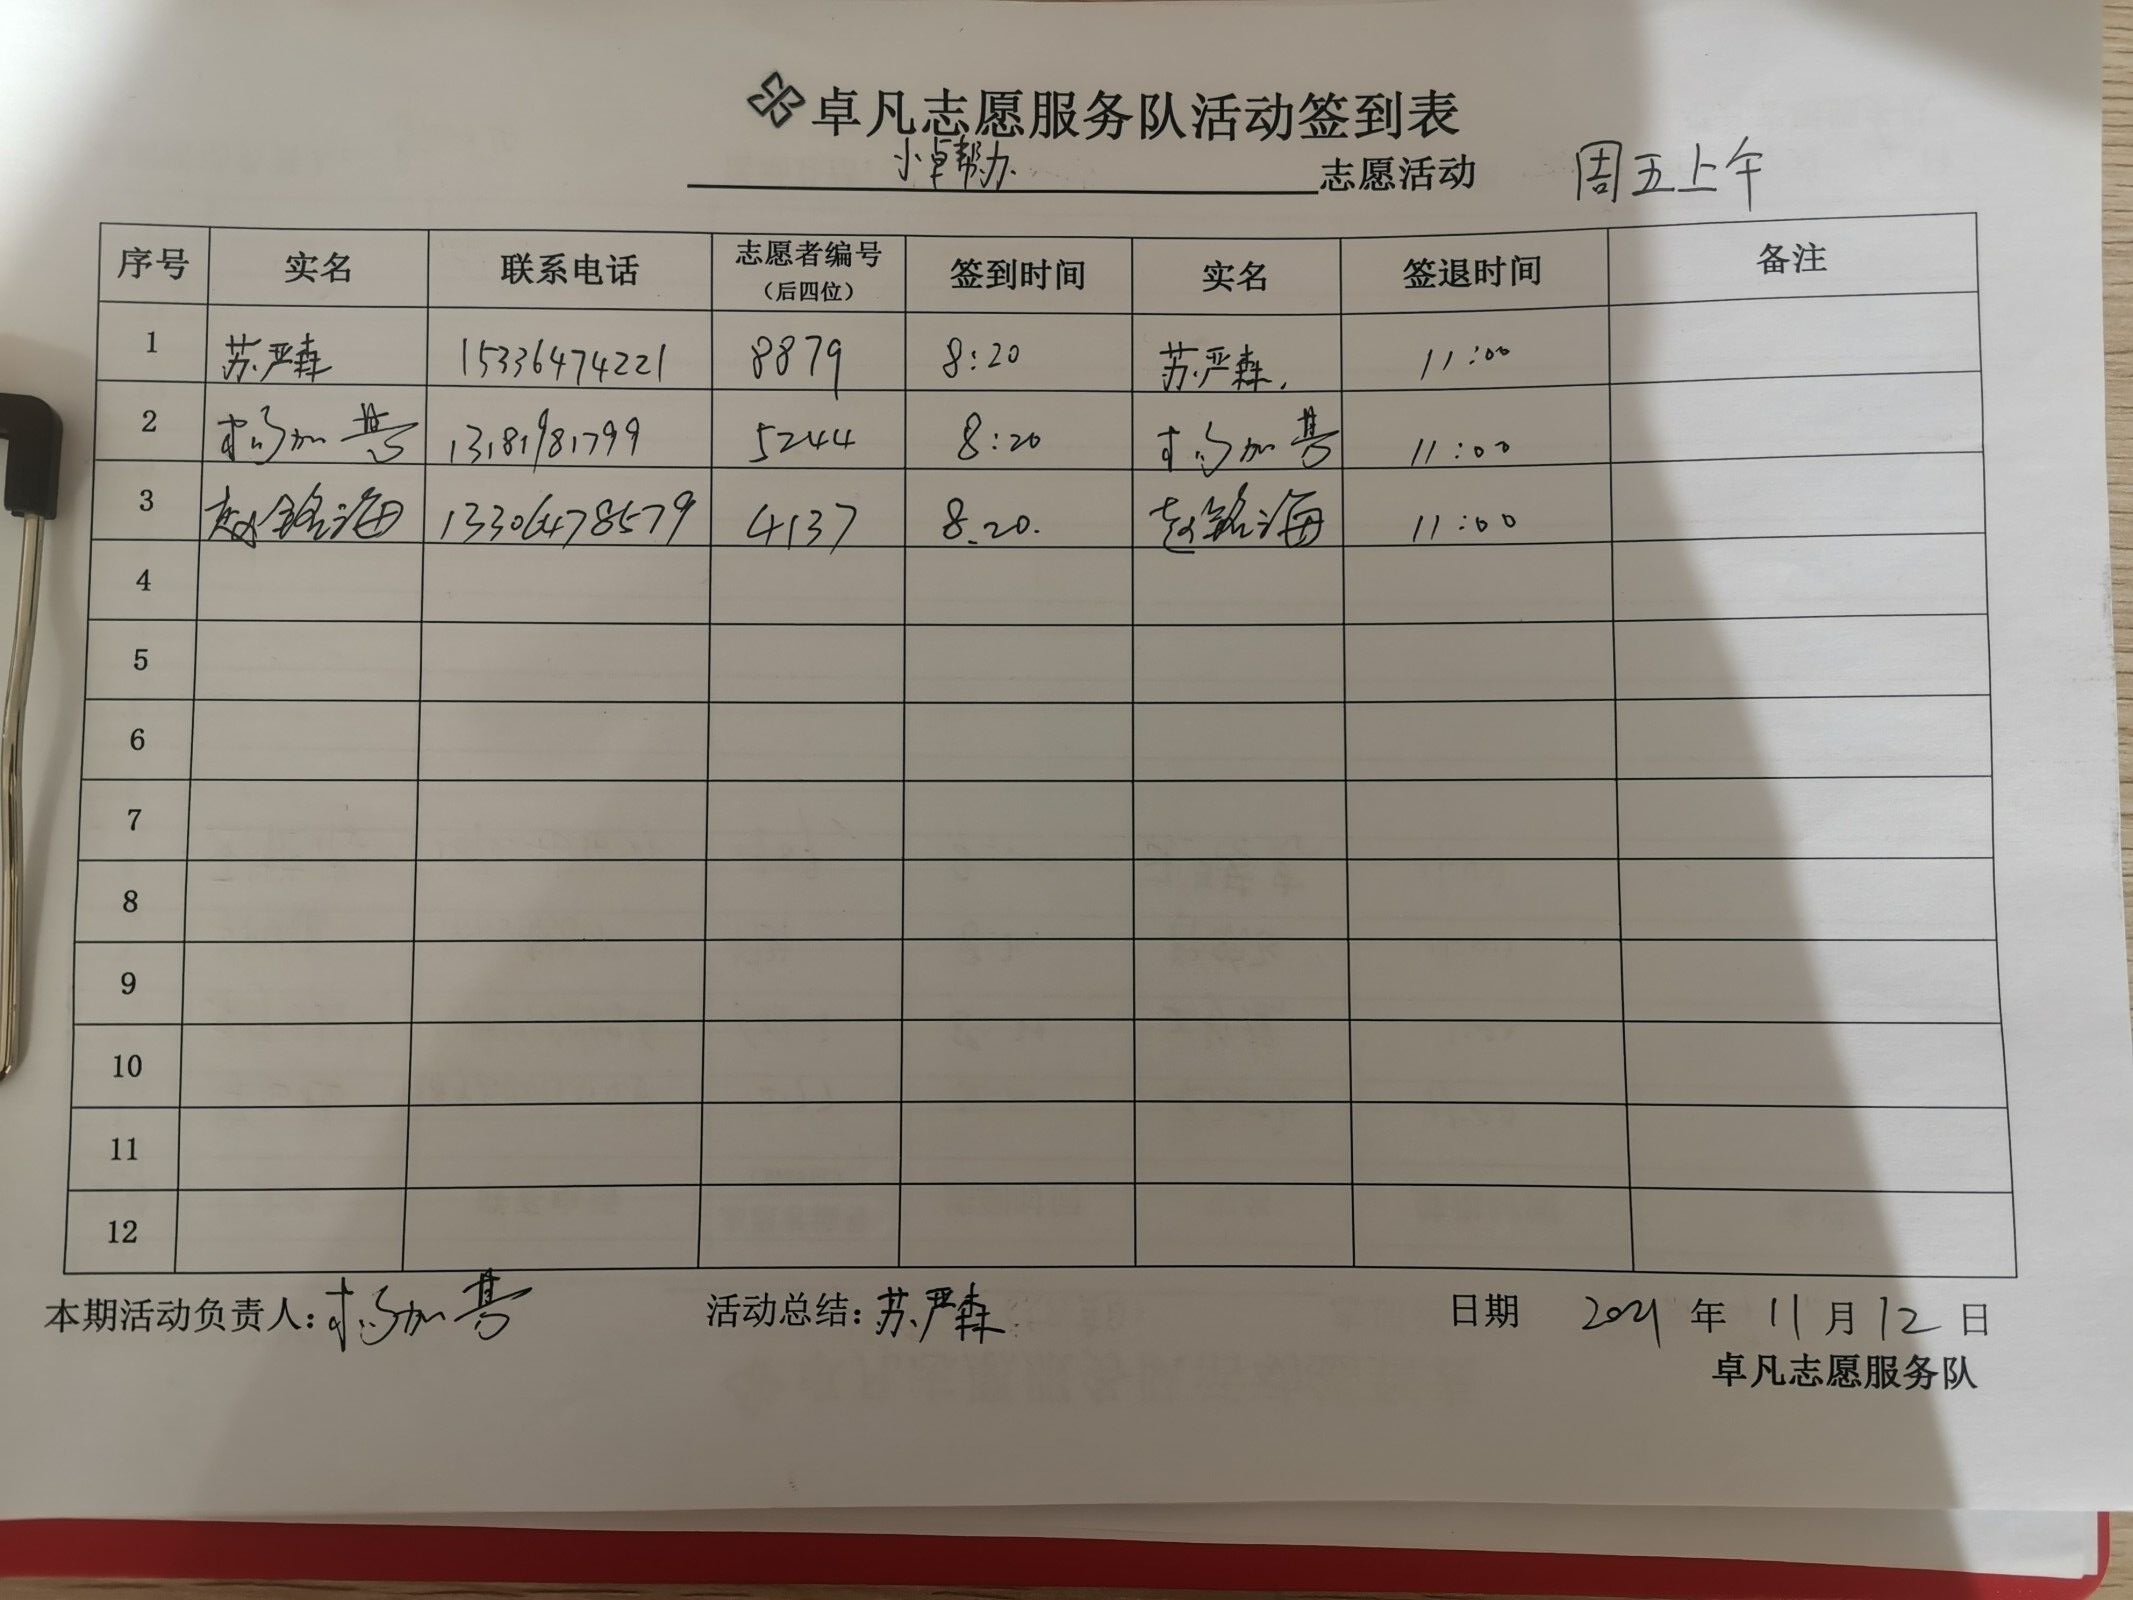 卓凡志愿服务队活动签到表
小卓帮办 志愿活动 周五上午
序号 实名 联系电话 志愿者编号（后四位） 签到时间 实名 签退时间 备注
1 苏严森 15336474221 8879 8:20 苏严森. 11:00
2 13181981799 5244 8:20 11:00
3 赵铭海 13306478579 4137 8.20. 赵铭海 11:00
4
5
6
7
8
9
10
11
12
本期活动负责人: 活动总结: 苏严森 日期 2021 年 11 月 12 日
卓凡志愿服务队